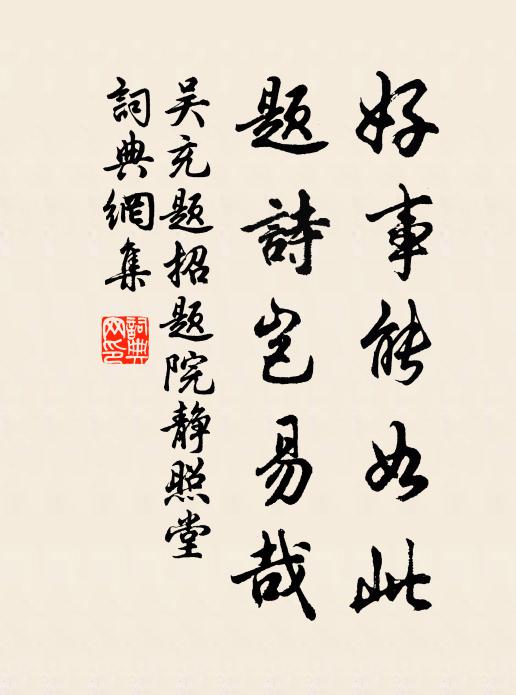 好事能如此
題詩岂易哉
吴充題招題院静照堂
詞典網集
詞典网印